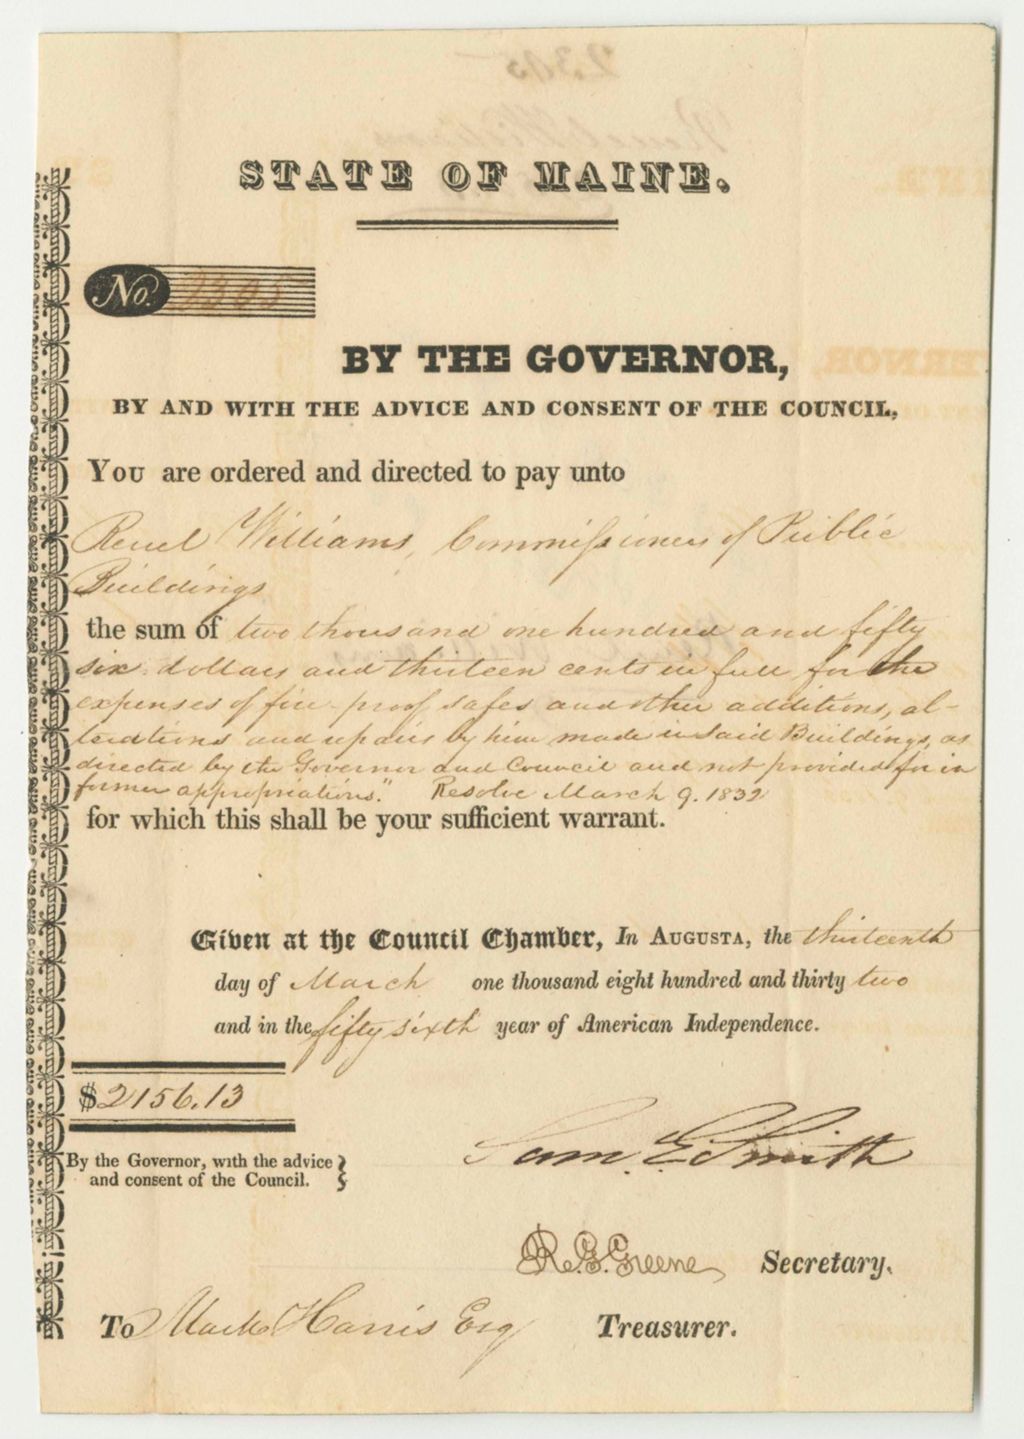 STATE OF MAINE.
No. 2305
BY THE GOVERNOR,
BY AND WITH THE ADVICE AND CONSENT OF THE COUNCIL,
YOU are ordered and directed to pay unto
Reuel Williams, Commissioner of Public
Buildings
the sum of two thousand one hundred and fifty
six dollars and thirteen cents in full for the
expenses of fire proof safes and other additions, al-
terations and repairs by him made in said Buildings, as
directed by the Governor and Council and not provided for in
former appropriations." Resolve March 9. 1832
for which this shall be your sufficient warrant.
Given at the Council Chamber, In AUGUSTA, the thirteenth
day of March one thousand eight hundred and thirty two
and in the fifty sixth year of American Independence.
$2156.13
Sam. E. Smith
By the Governor, with the advice
and consent of the Council.
R. G. Greene Secretary.
To Mark Harris Esq Treasurer.